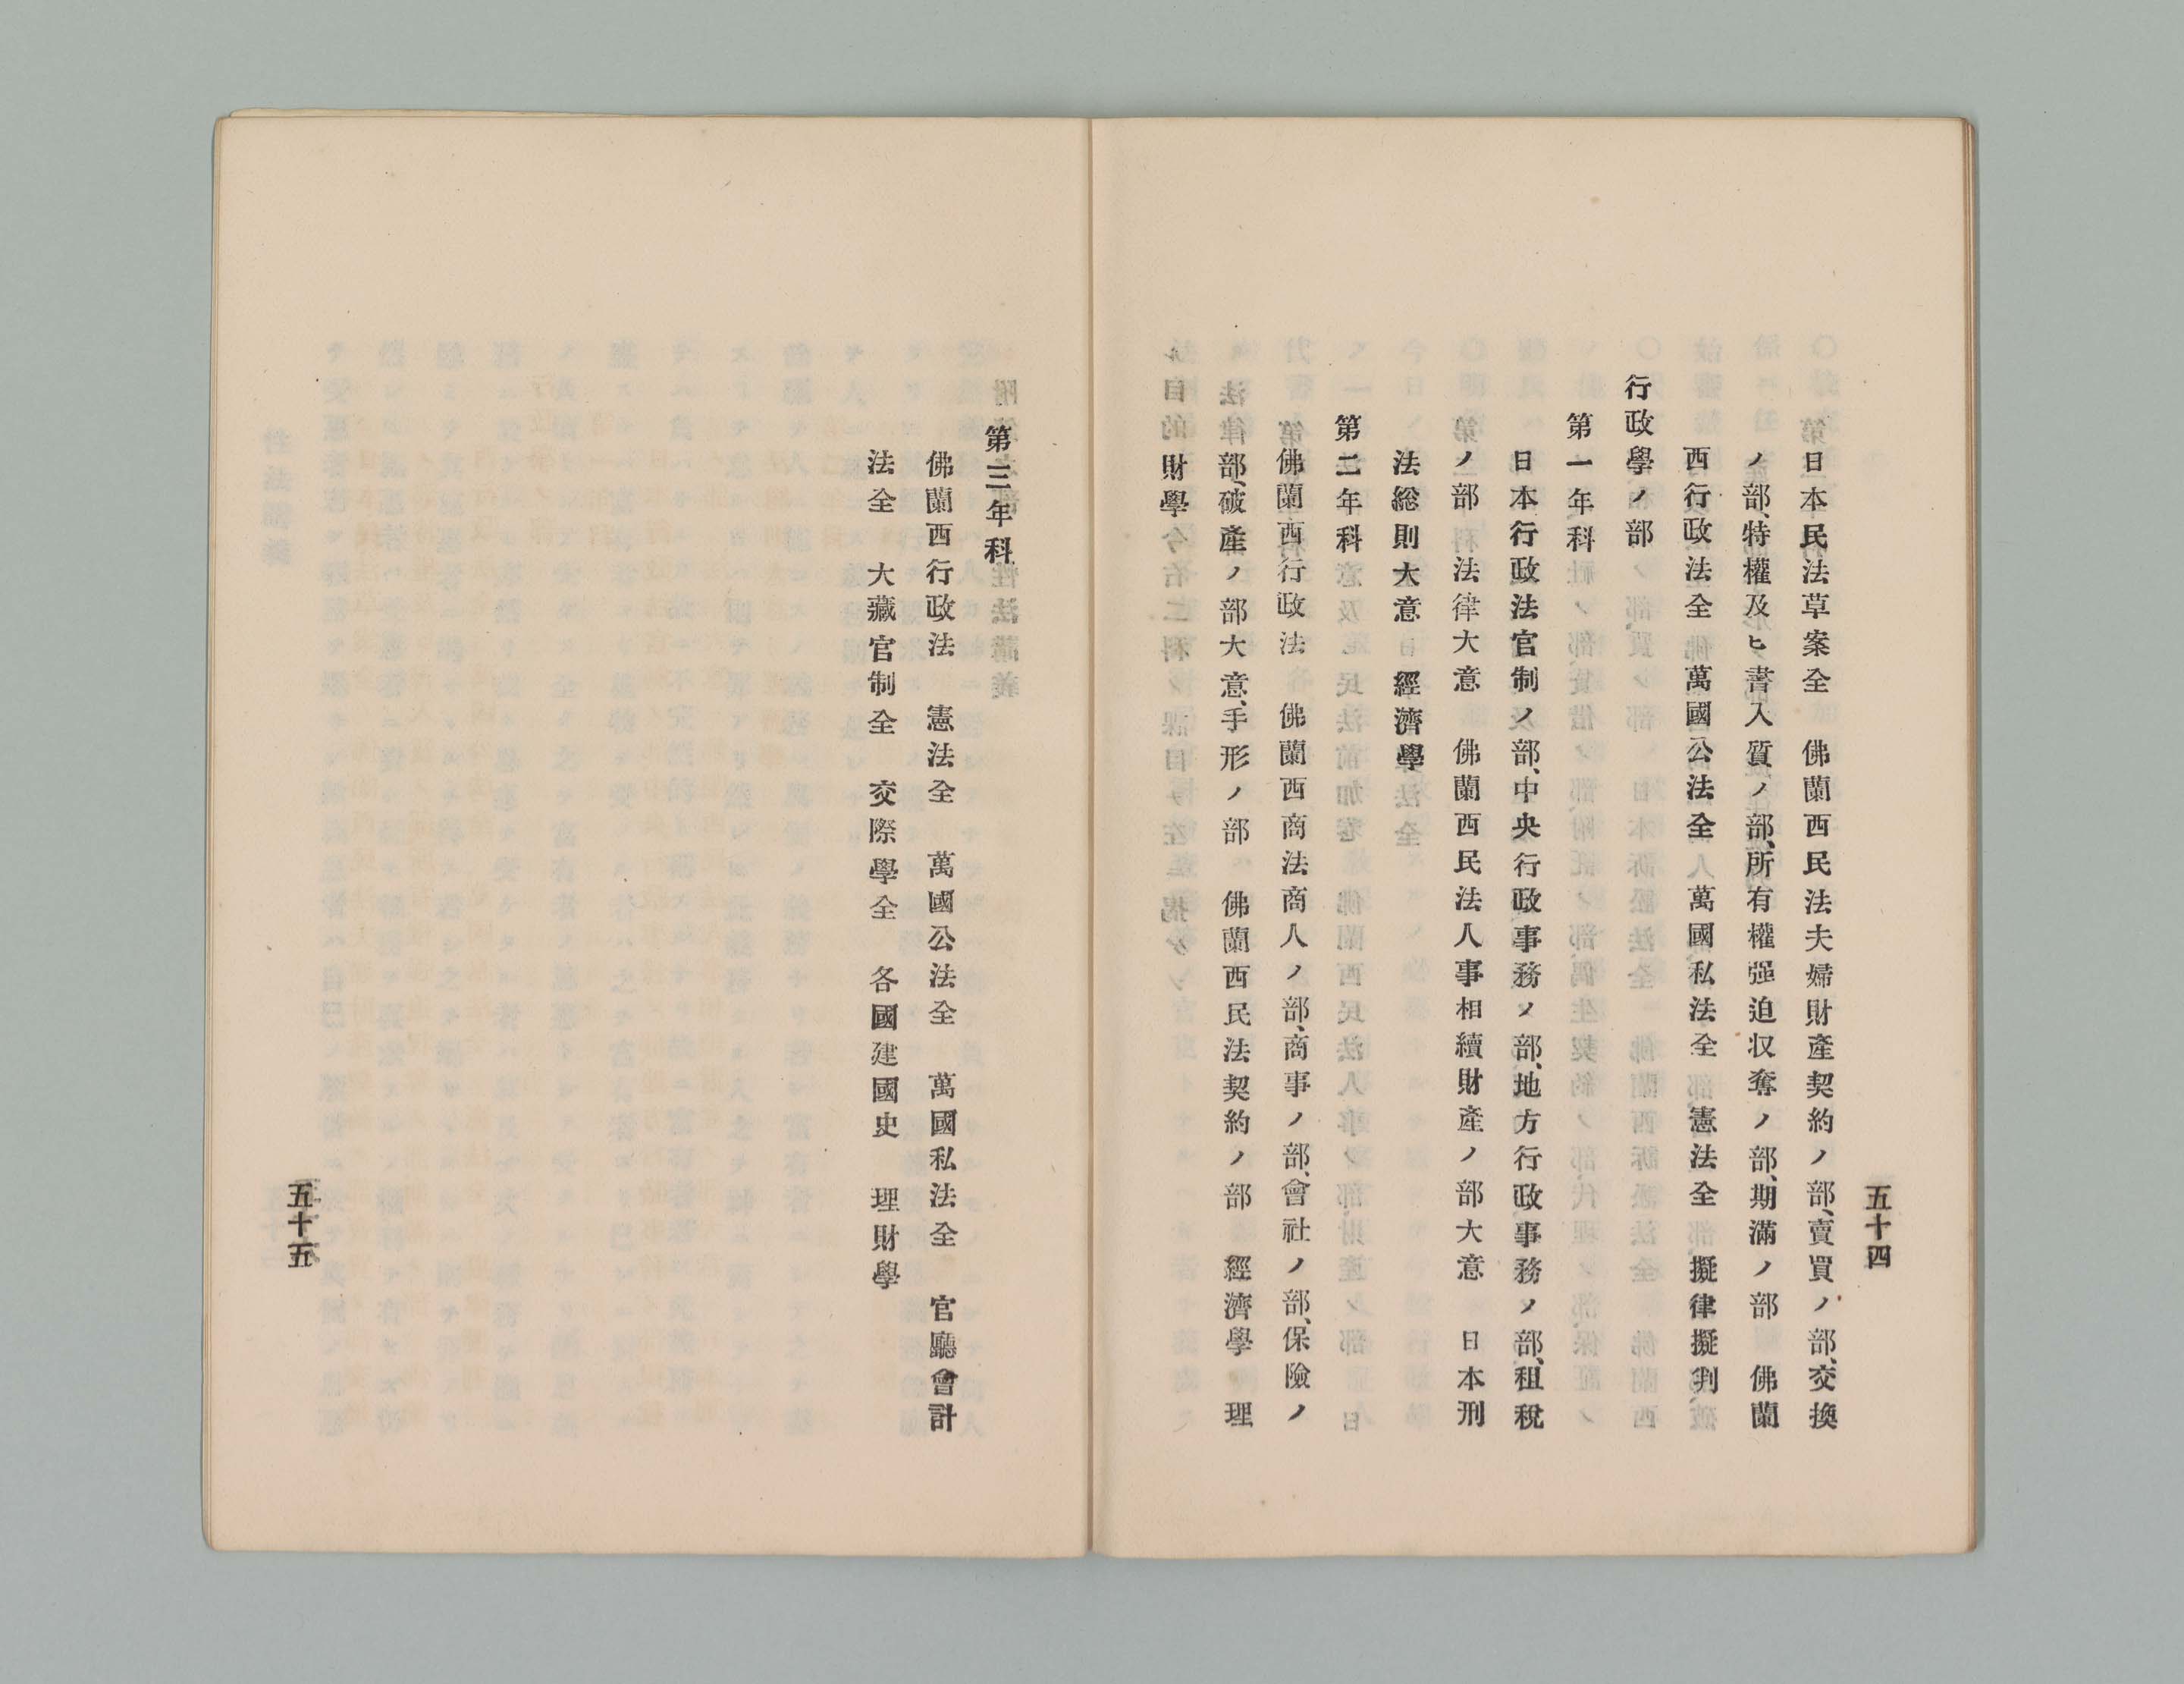 五十四
日本民法草案全　佛蘭西民法夫婦財產契約ノ部、賣買ノ部、交換
ノ部、特權及ヒ書入質ノ部、所有權强迫収奪ノ部、期滿ノ部　佛蘭
西行政法全　萬國公法全　萬國私法全　憲法全　擬律擬判
行政學ノ部
第一年科
日本行政法官制ノ部、中央行政事務ノ部、地方行政事務ノ部、租稅
ノ部　法律大意　佛蘭西民法人事相續財產ノ部大意　日本刑
法総則大意　經濟學
第二年科
佛蘭西行政法　佛蘭西商法商人ノ部、商事ノ部、會社ノ部、保險ノ
部、破產ノ部大意、手形ノ部　佛蘭西民法契約ノ部　經濟學　理
財學
第三年科
佛蘭西行政法　憲法全　萬國公法全　萬國私法全　官廳會計
法全　大藏官制全　交際學全　各國建國史　理財學
五十五